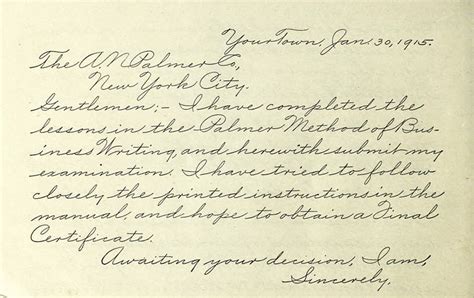 Your Town, Jan. 30, 1915.
The A. N. Palmer Co.,
New York City.
Gentlemen; - I have completed the
lessons in the Palmer Method of Bus-
iness Writing, and herewith submit my
examination. I have tried to follow
closely the printed instructions in the
manual, and hope to obtain a Final
Certificate.
Awaiting your decision, I am,
Sincerely,